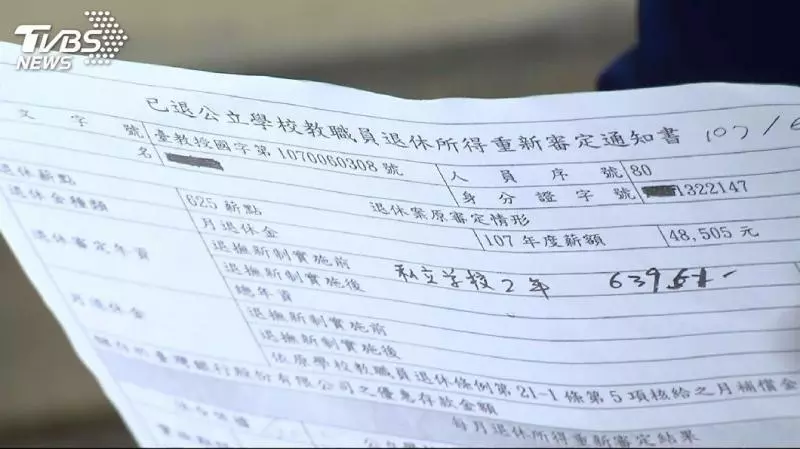 TVBS
NEWS
已退公立學校教職員退休所得重新審定通知書 107/6
文字號 臺教授國字第1070060308號 人員序號 80
名 身分證字號 1322147
退休薪點 625薪點 退休案原審定情形
退休金種類 月退休金 107年度薪額 48,505元
退休審定年資 退撫新制實施前
退撫新制實施後 私立学校2年
總年資
月退休金 退撫新制實施前
退撫新制實施後
依原學校教職員退休條例第21-1條第5項核給之月補償金
臺灣銀行股份有限公司之優惠存款金額
每月退休所得重新審定結果